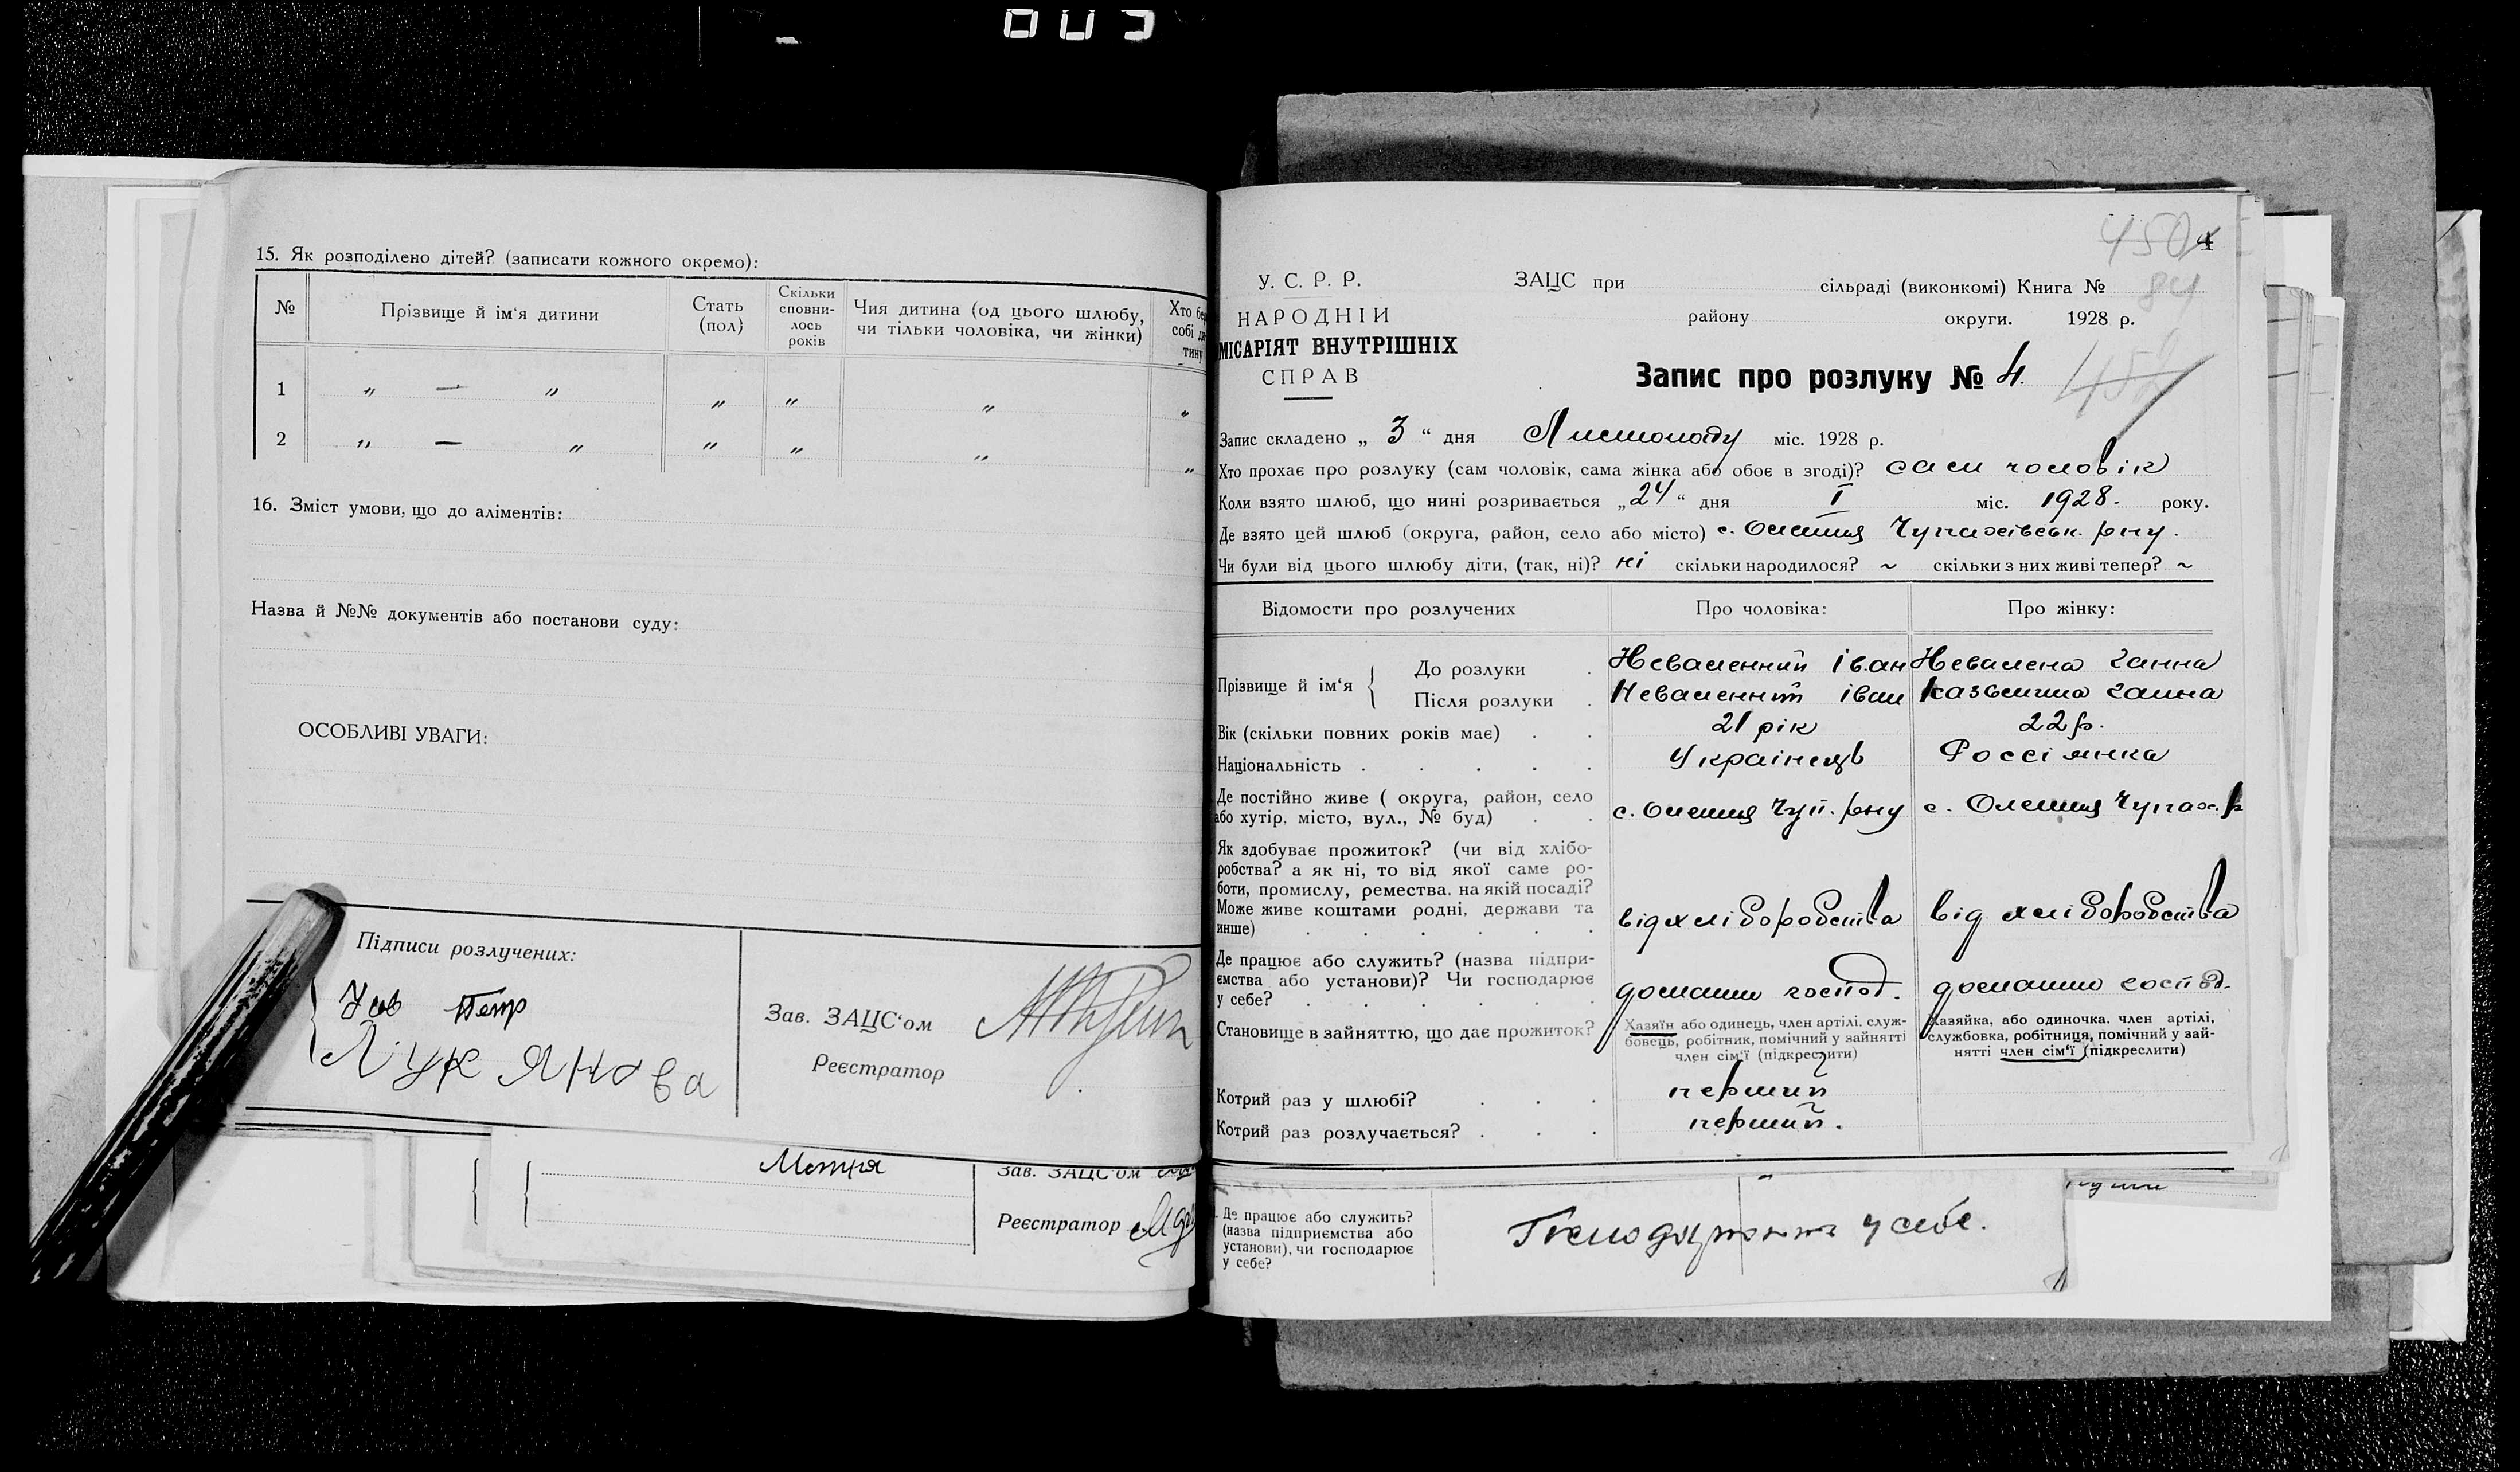 003
15. Як розподілено дітей? (записати кожного окремо):
№ Прізвище й ім‘я дитини Стать (пол) Скільки сповни- лось років Чия дитина (од цього шлюбу, чи тільки чоловіка, чи жінки) Хто бер собі ди тину
1 „ — „ „ „ „ „
2 „ — „ „ „ „ „
16. Зміст умови, що до аліментів:
Назва й №№ документів або постанови суду:
ОСОБЛИВІ УВАГИ:
Підписи розлучених:
Усв Петр
Лук янова
Зав. ЗАЦС‘ом
Реєстратор
Метря
Зав. ЗАЦС‘ом
Реєстратор
4501
4
84
У. С. Р. Р.
НАРОДНІЙ
МІСАРІЯТ ВНУТРІШНІХ
СПРАВ
ЗАЦС при сільраді (виконкомі) Книга №
району округи. 1928 р.
Запис про розлуку № 4.
452
Запис складено „ 3 “ дня Листопаду міс. 1928 р.
Хто прохає про розлуку (сам чоловік, сама жінка або обоє в згоді)? сам чоловік
Коли взято шлюб, що нині розривається „24“ дня I міс. 1928. року.
Де взято цей шлюб (округа, район, село або місто) с. Олешня Чупахівськ. рну.
Чи були від цього шлюбу діти, (так, ні)? ні скільки народилося? ~ скільки з них живі тепер? ~
Відомости про розлучених Про чоловіка: Про жінку:
Прізвище й ім‘я
До розлуки . Невалений Іван Невалена Ганна
Після розлуки . Невалений Іван Ганна
Вік (скільки повних років має) . . 21 рік 22 р.
Національність . . . . . Українець Россіянка
Де постійно живе ( округа, район, село
або хутір, місто, вул., № буд) . . с. Олешня Чуп. рну с. Олешня Чупах. р
Як здобуває прожиток? (чи від хлібо-
робства? а як ні, то від якої саме ро-
боти, промислу, ремества. на якій посаді?
Може живе коштами родні, держави та
инше) . . . . . . від хліборобства від хліборобства
Де працює або служить? (назва підпри-
ємства або установи)? Чи господарює
у себе? . . . . . . домашн господ. домашн господ.
Становище в зайняттю, що дає прожиток?
Хазяїн або одинець, член артілі, служ-
бовець, робітник, помічний у зайнятті
член сім‘ї (підкреслити)
Хазяйка, або одиночка, член артілі,
службовка, робітниця, помічний у зай-
нятті член сім‘ї (підкреслити)
Котрий раз у шлюбі? . . . перший
Котрий раз розлучається? . . . перший.
Де працює або служить?
(назва підприємства або
установи), чи господарює
у себе?
у себе.